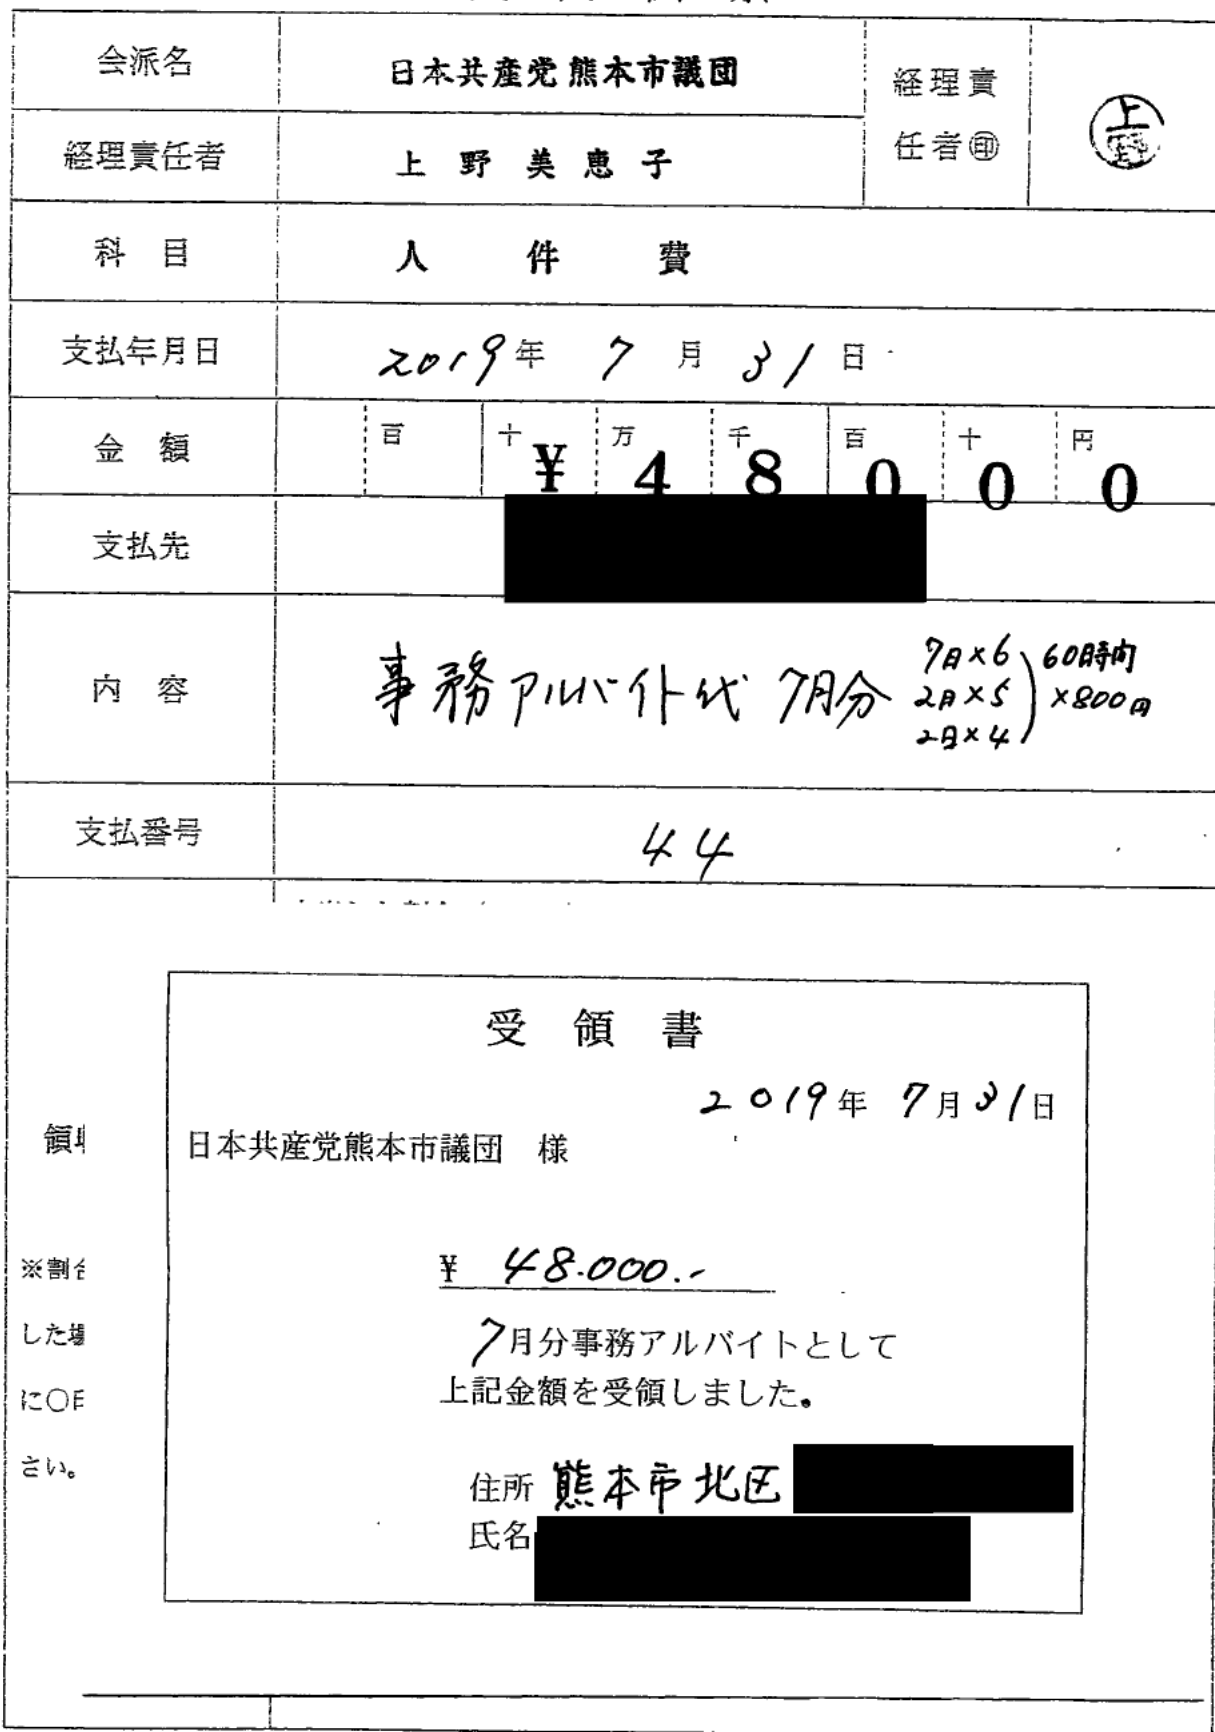 会派名 日本共産党熊本市議団 経理責任者㊞ 上野
経理責任者 上野美恵子
科目 人件費
支払年月日 2019年 7月 31日
金額 百 十 万 千 百 十 円
¥48000 0
支払先
内容 事務アルバイト代 7月分
7日×6
2日×5
2日×4
60時間
×800円
支払番号 44
受領書
2019年 7月31日
日本共産党熊本市議団 様
領
¥ 48.000.-
※割合
7月分事務アルバイトとして
した場
上記金額を受領しました。
に○
さい。
住所 熊本市北区
氏名